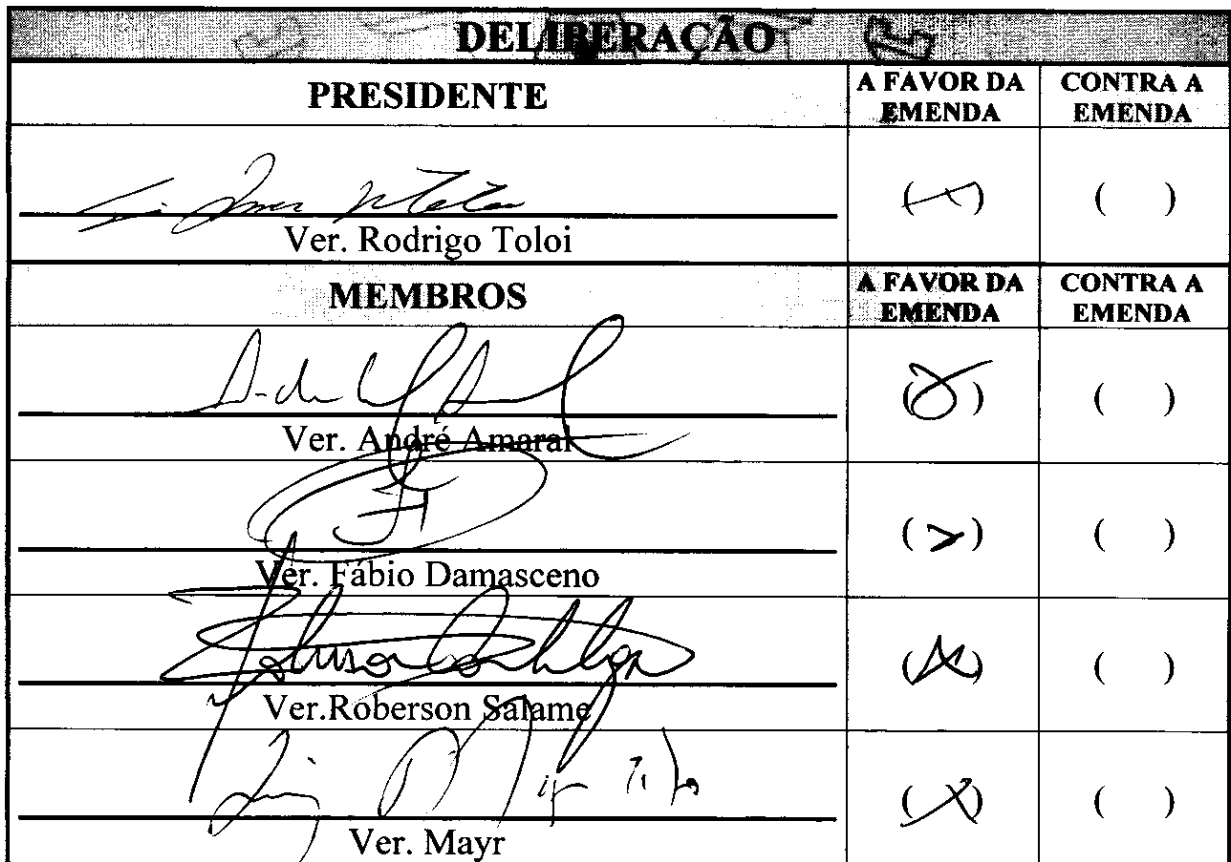 DELIBERAÇÃO
PRESIDENTE A FAVOR DA EMENDA CONTRA A EMENDA
Ver. Rodrigo Toloi ( ) ( )
MEMBROS A FAVOR DA EMENDA CONTRA A EMENDA
Ver. André Amaral ( ) ( )
Ver. Fábio Damasceno ( ) ( )
Ver.Roberson Salame ( ) ( )
Ver. Mayr (X) ( )